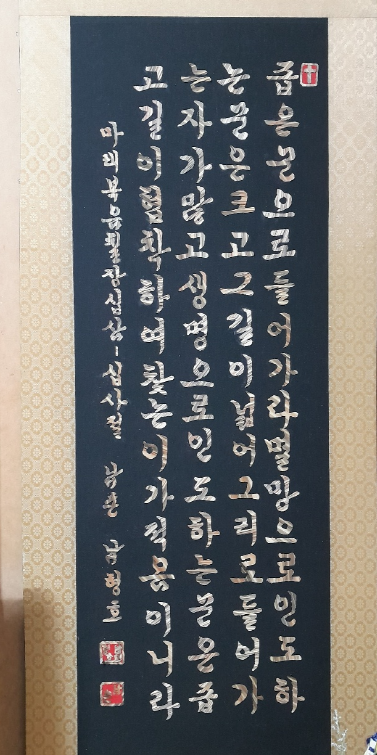 좁은문으로들어가라멸망으로인도하
는문은크고그길이넓어그리로들어가
는자가많고생명으로인도하는문은좁
고길이협착하여찾는이가적음이니라
마태복음칠장십삼-십사절 남형호